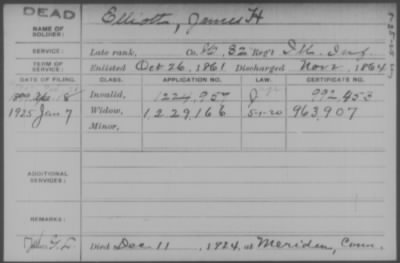 DEAD
NAME OF SOLDIER: Elliott, James H
SERVICE: Late rank, Co. 32 Reg't Ill. Inf.
TERM OF SERVICE: Enlisted Oct 26, 1861 Discharged Nov 2, 1864
DATE OF FILING. CLASS. APPLICATION NO. LAW. CERTIFICATE NO.
Invalid, 992,453
1925 Jan. 7 Widow, 1,229,166 5-1-20 963,907
Minor,
ADDITIONAL SERVICES:
REMARKS:
Died Dec. 11, 1924, at Meriden, Conn.